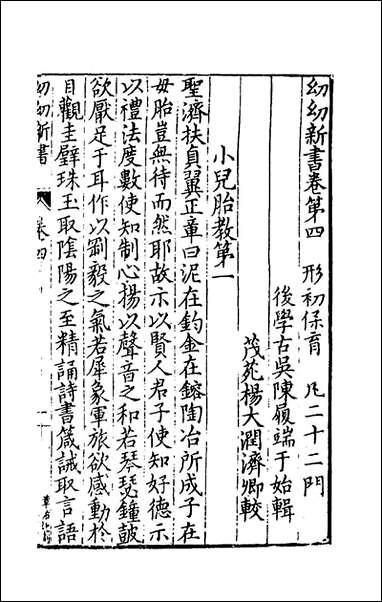 幼幼新書卷第四　形初保育　凡二十二門
後學古吳陳履端于始輯
茂苑楊大潤濟卿較
小兒胎教第一
聖濟扶眞翼正章曰泥在鈞金在鎔陶冶所成子在
母胎豈無待而然耶故示以賢人君子使知好德示
以禮法度數使知制心揚以聲音之和若琴瑟鐘皷
欲厭足于耳作以剛毅之氣若犀象軍旅欲感動於
目觀圭璧珠玉取陰陽之至精誦詩書箴誡取言語
幼幼新書
卷四